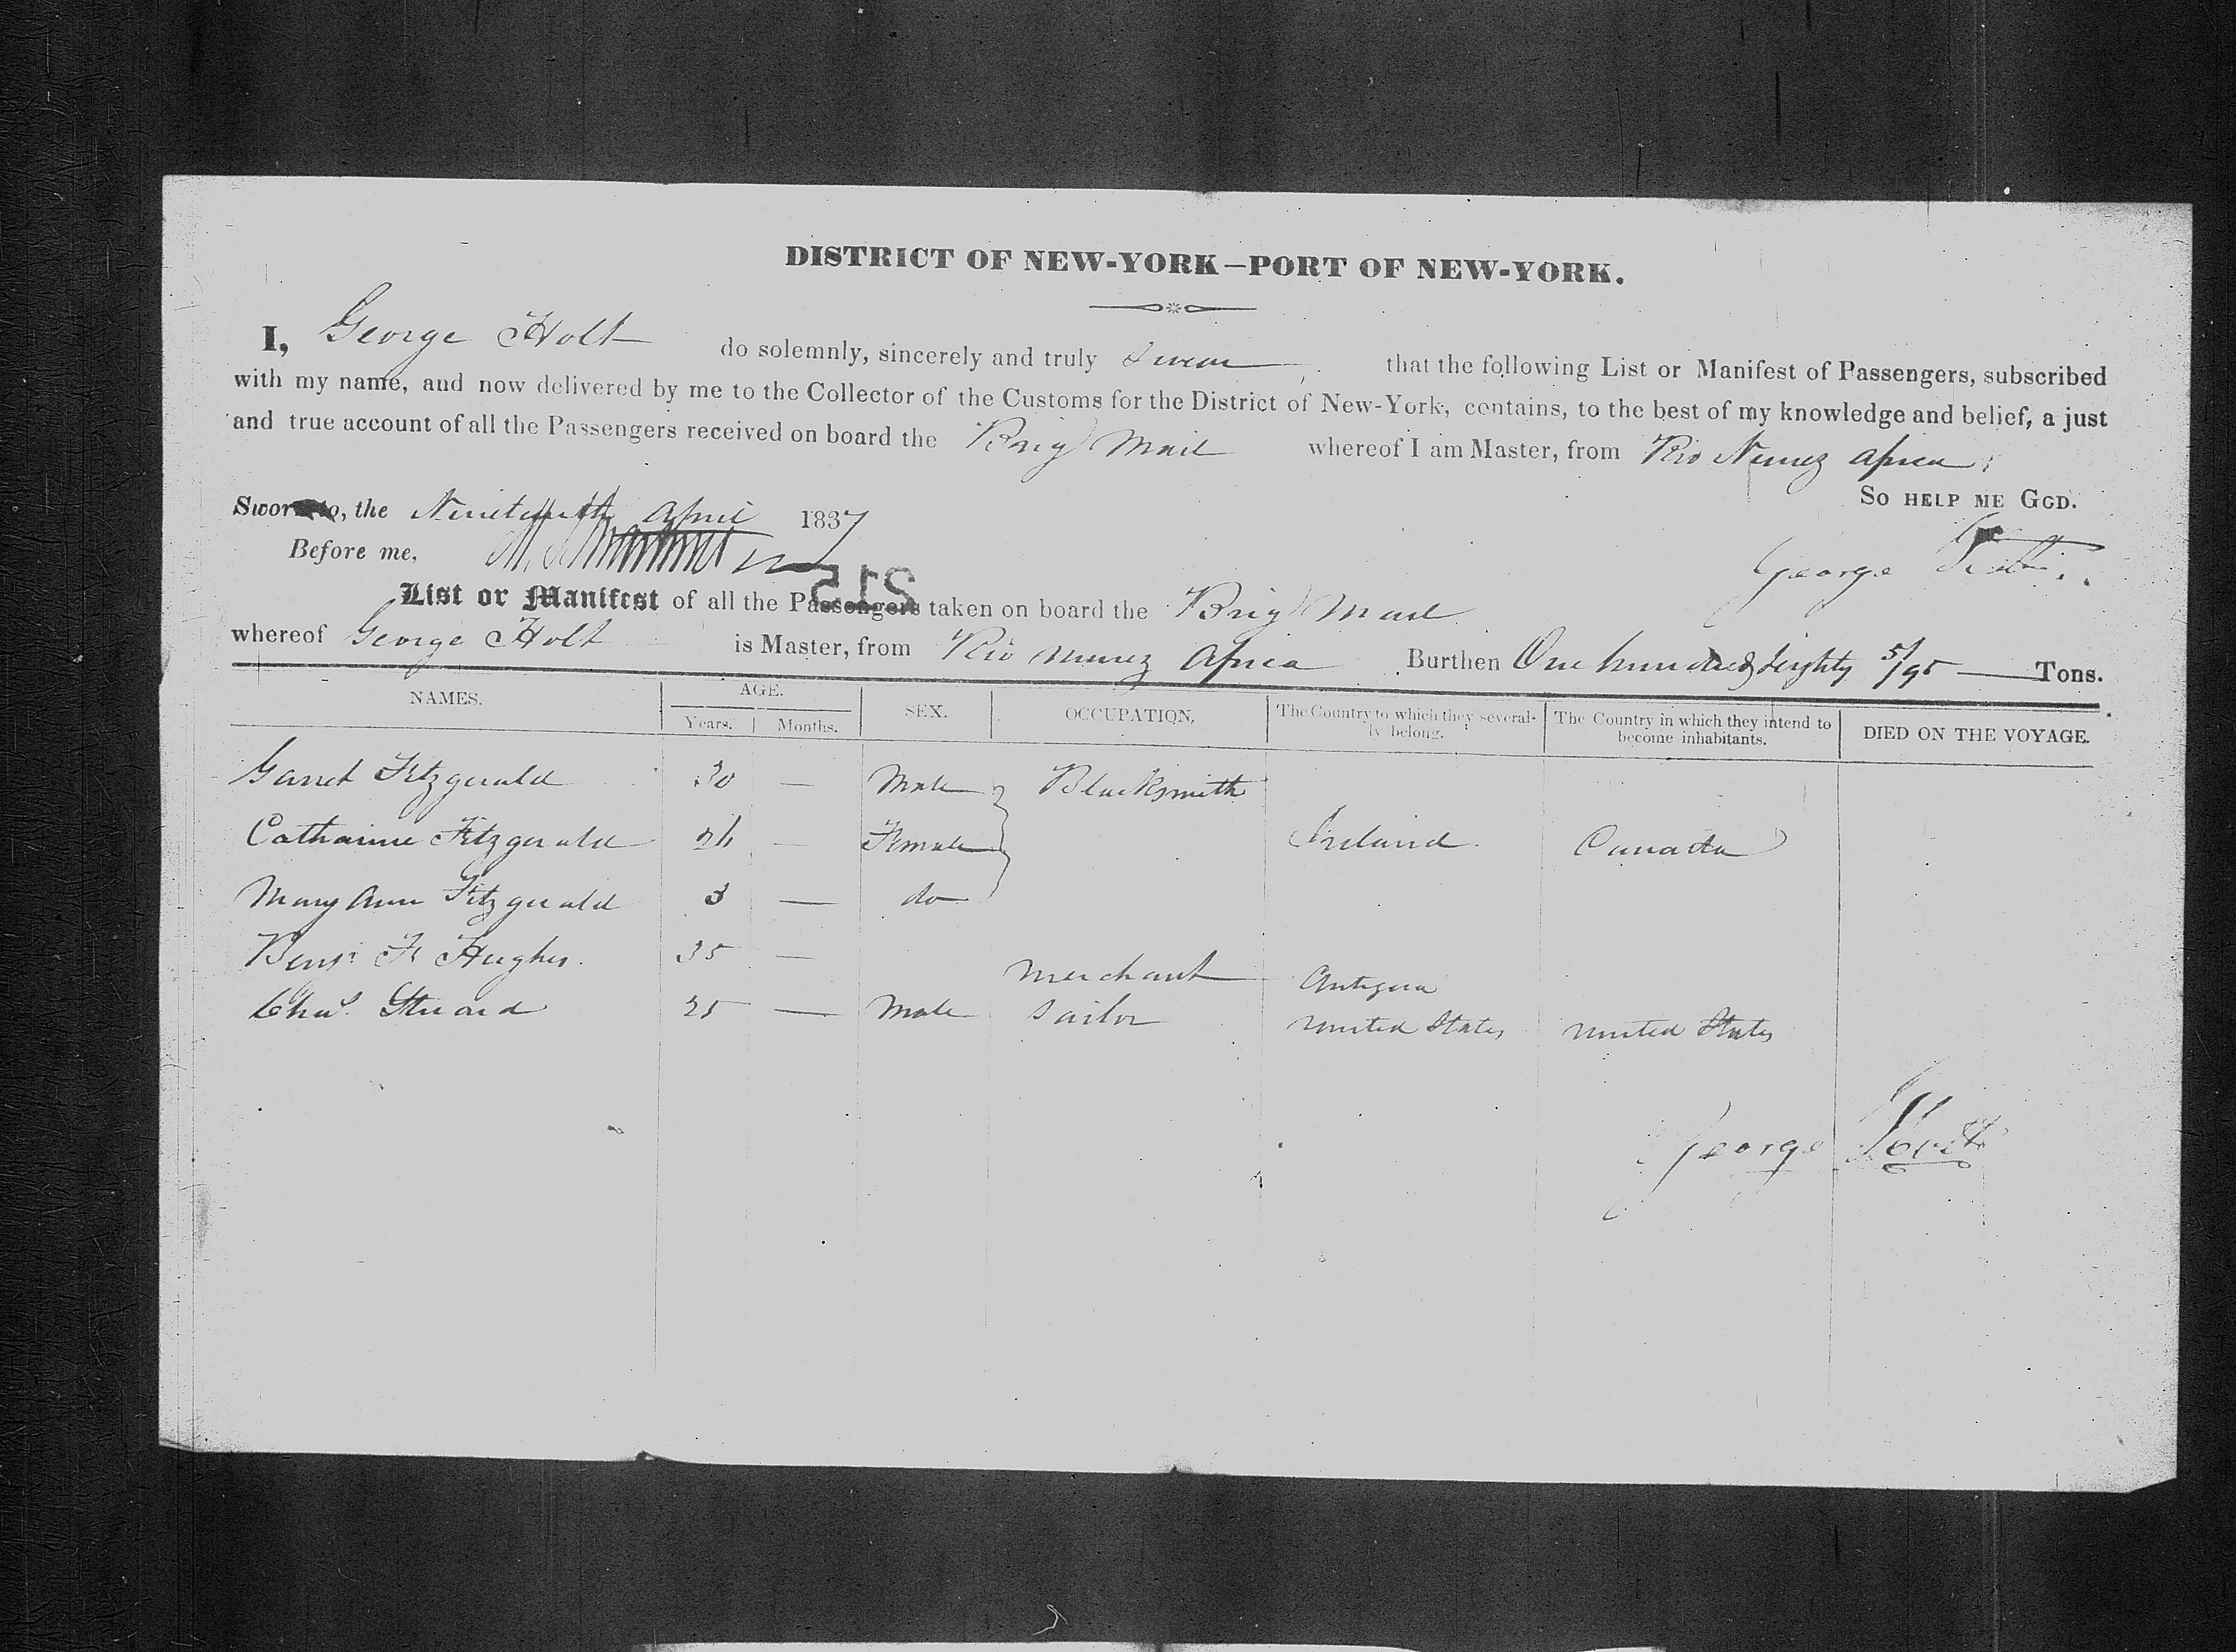 DISTRICT OF NEW-YORK—PORT OF NEW-YORK.
I, George Holt do solemnly, sincerely and truly swear that the following List or Manifest of Passengers, subscribed
with my name, and now delivered by me to the Collector of the Customs for the District of New-York, contains, to the best of my knowledge and belief, a just
and true account of all the Passengers received on board the Brig Mail whereof I am Master, from Rio Nunez Africa
So HELP ME GOD.
Sworn to, the Nineteenth April 1837
Before me,
George Holt
215
List or Manifest of all the Passengers taken on board the Brig Mail
whereof George Holt is Master, from Rio Nunez Africa Burthen One hundred & eighty 5/95 Tons.
NAMES. AGE. SEX. OCCUPATION. The Country to which they severally belong. The Country in which they intend to become inhabitants. DIED ON THE VOYAGE.
Years. Months.
Garret Fitzgerald 30 — Male Blacksmith
Catharine Fitzgerald 26 — Female Ireland Canada
Mary Ann Fitzgerald 3 — do
Benj. F. Hughes. 35 — Merchant Antigua
Chas. Steward 25 — Male Sailor United States United States
George Holt